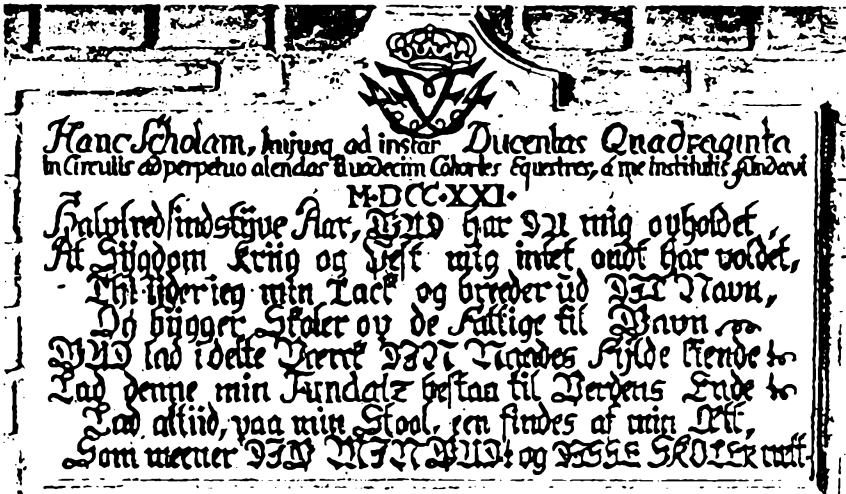 Hanc Scholam, hujusq ad instar Ducentas Quadraginta
In Circulis ad perpetuo alendas Duodecim Cohortes Equestres, a me Institutis fundavi
M·DCC·XXI·
Halvfredsindstÿve Aar, GUD har DU mig opholdet,
At Sÿgdom Kriig og Pest mig intet ondt har voldet,
Thi ÿder ieg min Tack og breeder ud DIT Navn,
Og bÿgger Skoler op de Fattige til Gavn
GUD lad i dette Værck DIN Naades Fÿlde kiende
Lad denne min Fundatz bestaa til Verdens Ende
Lad altiid, paa min Stool, een findes af min Ætt,
Som meener DIG MIN GUD! og DISSE SKOLER rætt